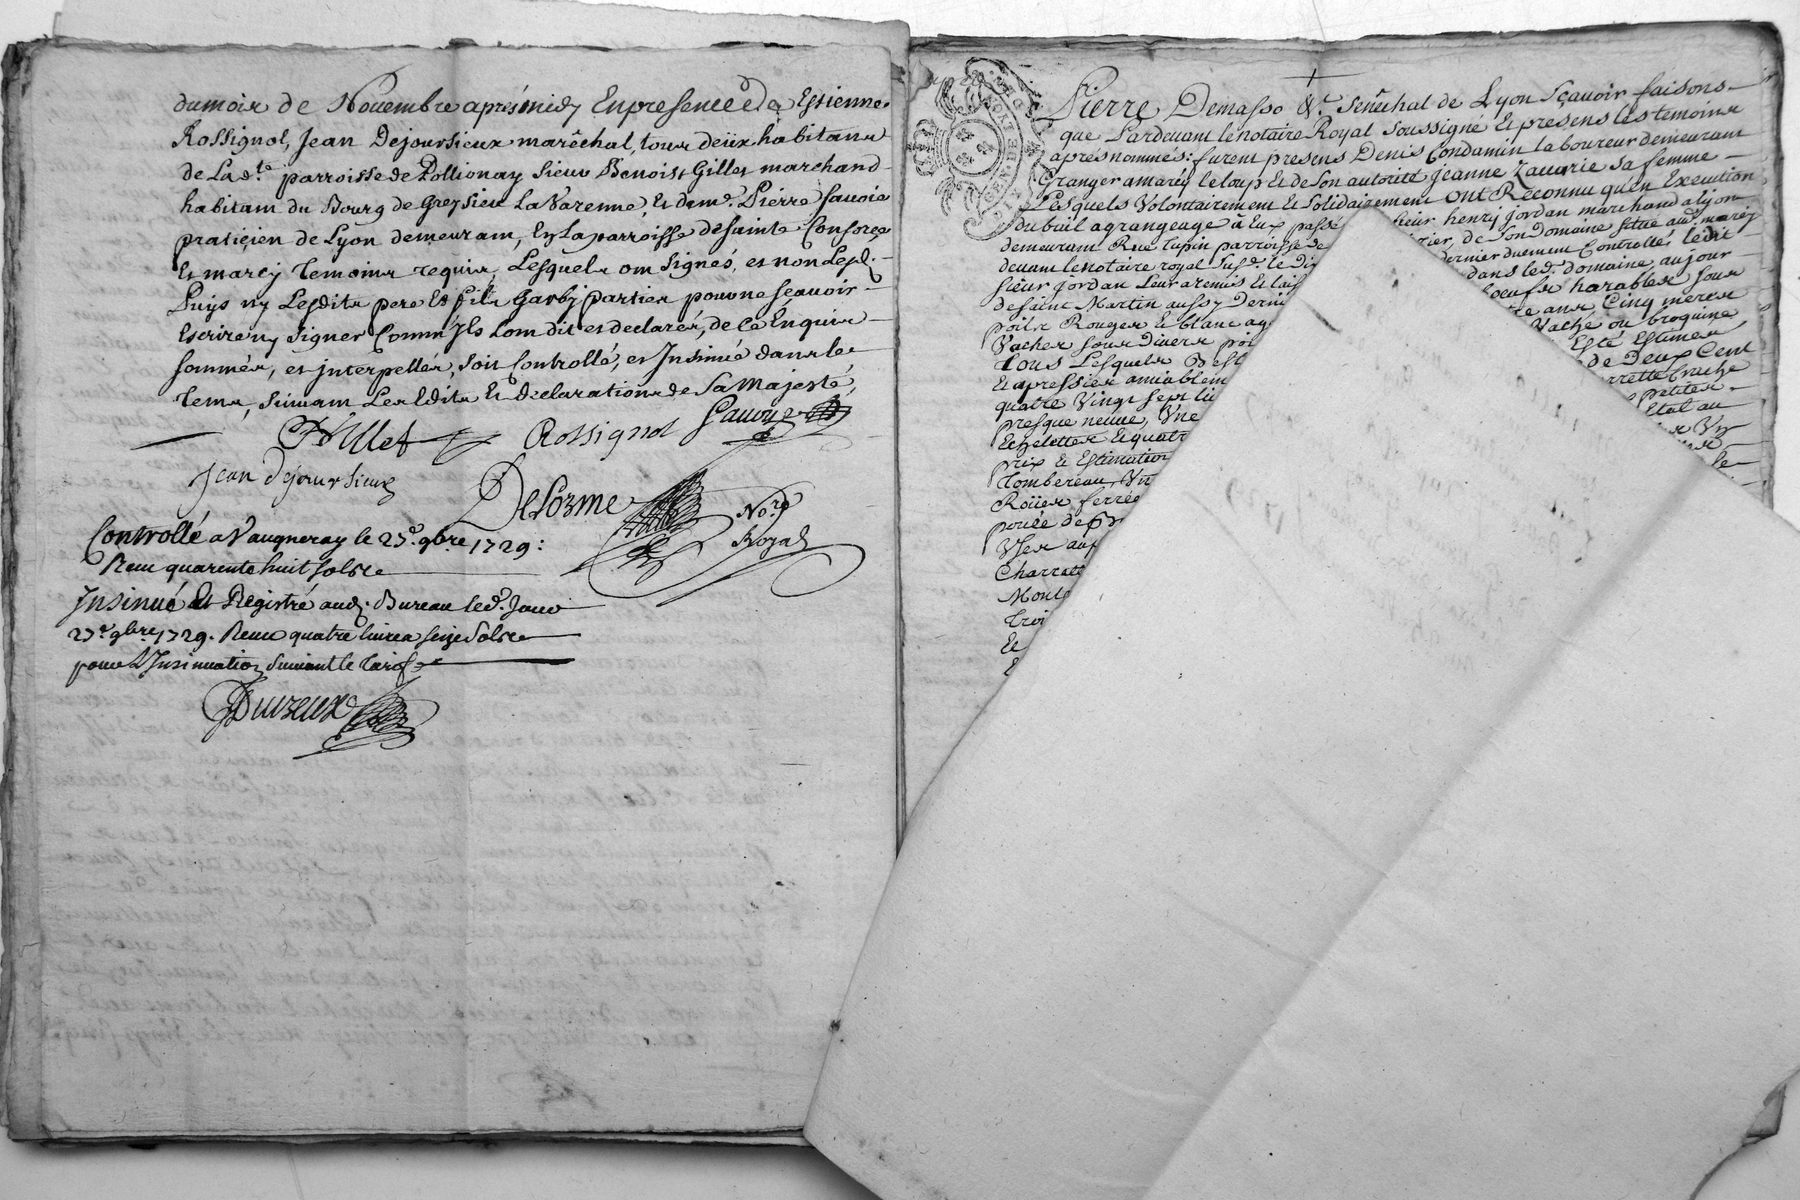 du mois de Novembre aprés midy En presence de Estienne
Rossignol, Jean Dejoursieux maréchal, tous deux habitans
de Lad.te parroisse de Pollionay Sieur Benoist Gilles marchand
habitant du Bourg de Greysieu La Varenne, Et dem.r Pierre Sauoie
praticien de Lyon demeurant, En La parroisse de sainte Consorce
Et marcy temoins requis, Lesquels ont Signés, et non Lesd.
Puys ny Lesdits pere Et fils Garby parties pour ne sçauoir
Escrire ny signer Comm'Ils L'ont dit et declarés, de ce Enquis
sommés, et interpellés, soit Controllé, et Insinué dans les
tems, suivant Les Edits Et declarations de Sa Majesté,
Rossignol Sauoye
Jean Dejoursieux
Delorme No.re
Royal
Controllé a Vaugneray le 23.e 9bre 1729:
Receu quarente huit sols
Insinué Et Registré aud. Bureau led. Jour
23.e 9bre 1729. Receu quatre liures seize Sols
pour L'Insinuation Suiuant le tarif
Pierre Demasso &.r Senechal de Lyon Sçauoir faisons
que Pardeuant le notaire Royal soussigné Et presens les temoins
aprés nommés: furent presens Denis Condamin laboureur demeurant
Granger a marcy le loup Et de son autorité Jeanne Zacarie sa femme
Lesquels Volontairement Et solidairement ONt Reconnu qu'en Execution
du bail a grangeage à Eux passé sieur henry Jordan marchand a lyon
demeurant Rue lupin parroisse de de Son Domaine situé aud. marcy
deuant le notaire royal sus.d. le dernier duement Controllé, ledit
sieur Jordan Leur a remis Et dans led. domaine aujour
de saint Martin boeufs harables sous
poils Rouges Et blanc ans Cinq meres
Vaches sous diuers poi Vache ou broquine
tous Lesquels Best Esté Estimés
Et apressiés amiablem de Deux Cent
quatre Vingt sept Li
presque neuue, Vne petites
Echelettes Et quatr Etat au
prix Et Estimation Vn
tombereau, Vn
Roües ferrée
Charrete
Troi
Et